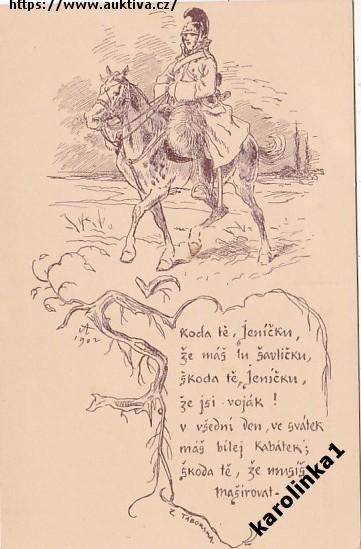 https://www.auktiva.cz/
1902
Škoda tě, Jeníčku,
že máš tu šavličku,
škoda tě, Jeníčku,
že jsi voják!
v všední den, ve svátek
máš bílej kabátek;
škoda tě, že musíš
mašírovat.
karolinka1